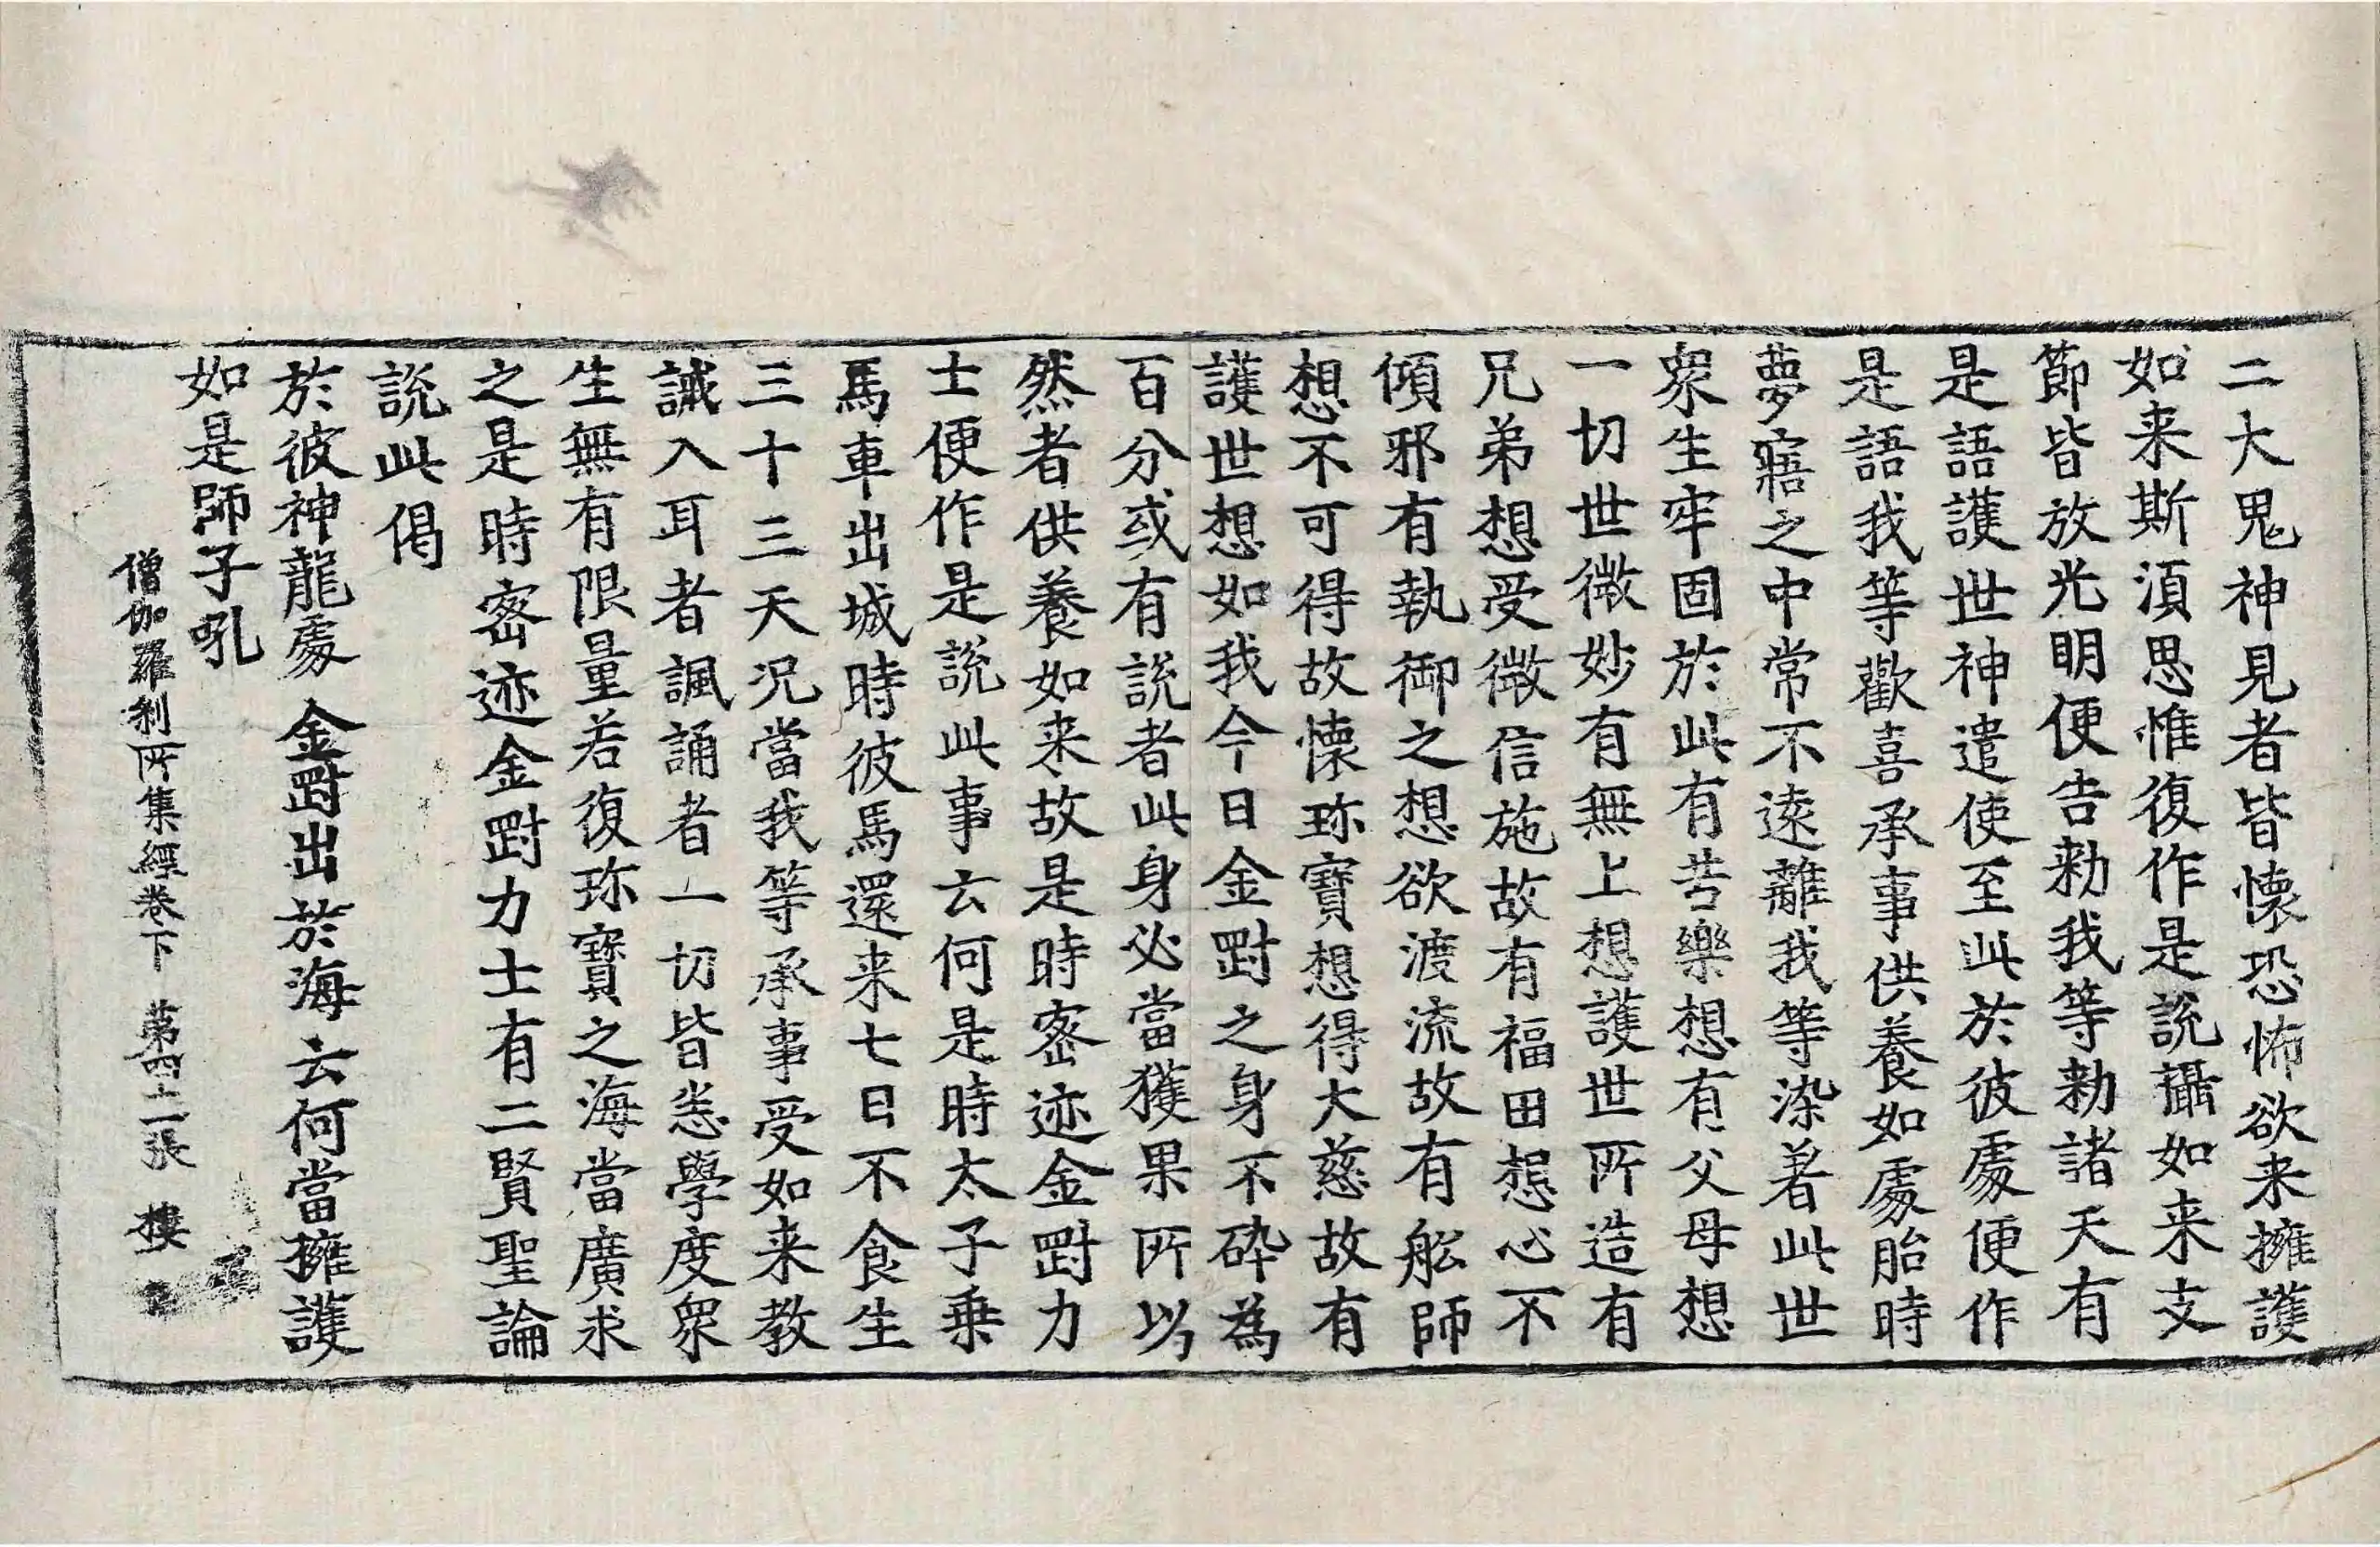 二大鬼神見者皆懐恐怖欲来擁護
如来斯湏思惟復作是說攝如来支
節皆放光明便告勑我等勑諸天有
是語護世神遣使至此於彼處便作
是語我等歡喜承事供養如處胎時
夢寤之中常不遠離我等染著此世
衆生牢固於此有苦樂想有父母想
一切世微妙有無上想護世所造有
兄弟想受微信施故有福田想心不
傾邪有執御之想欲渡流故有舩師
想不可得故懐珎寶想得大慈故有
護世想如我今日金剛之身不碎為
百分或有說者此身必當獲果所以
然者供養如来故是時密迹金剛力
士便作是說此事云何是時太子乗
馬車出城時彼馬還来七日不食生
三十三天况當我等承事受如来教
誡入耳者諷誦者一切皆悉學度衆
生無有限量若復珎寶之海當廣求
之是時密迹金剛力士有二賢聖論
說此偈
於彼神龍處　金剛出於海　云何當擁護
如是師子吼
僧伽羅刹所集經卷下　第四十二張　樓